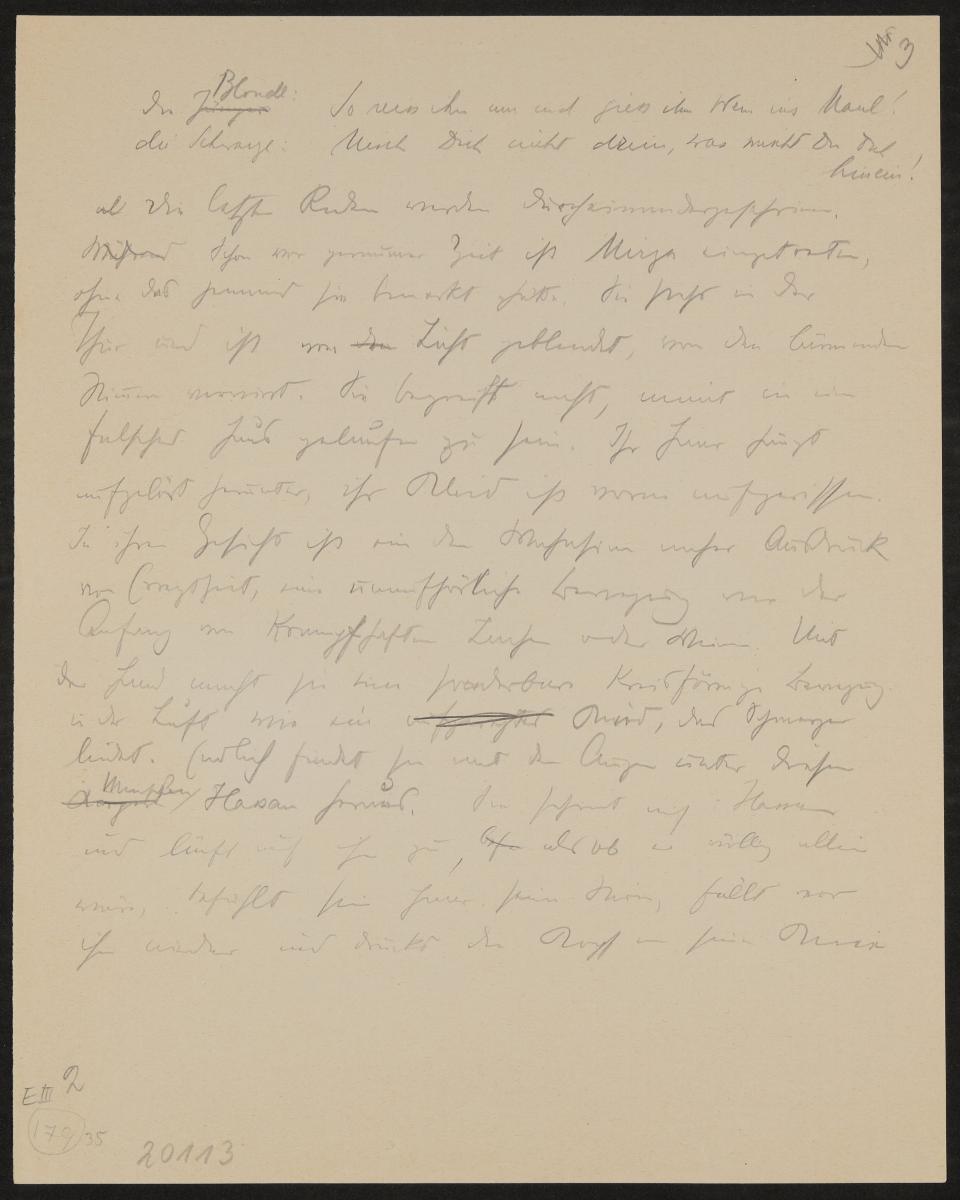 3
Blonde:
der Junge So reiss ihn um und giess ihm Wein ins Maul!
die Schwarze: Misch Dich nicht drein, was mischt Du Dich
hinein!
all die letzten Reden werden durcheinandergeschrieen.
Während Schon vor geraumer Zeit ist Mirza eingetreten,
ohne das jemand sie bemerkt hätte. Sie steht in der
Thür und ist von dem Licht geblendet, von den lärmenden
Stimmen verwirrt. Sie begreift nicht, meint in ein
falsches Haus gelaufen zu sein. Ihr Haar hängt
aufgelöst herunter, ihr Kleid ist vorne aufgerissen.
In ihrem Gesicht ist ein dem Wahnsinn naher Ausdruck
von Erregtheit, eine unaufhörliche Bewegung wie der
Anfang von krampfhaften Lachen oder Weinen. Mit
der Hand macht sie eine sonderbare kreisförmige Bewegung
in der Luft wie ein Kind, das Schmerzen
leidet. Endlich findet sie mit den Augen unter diesen
Menschen Hassan heraus. Sie schreit auf: Hassan
und läuft auf ihn zu, als ob er völlig allein
wäre, befühlt sein Haar sein Stirn, fällt vor
ihm nieder und drückt den Kopf an seine Knie
E III 2
179 35
20113